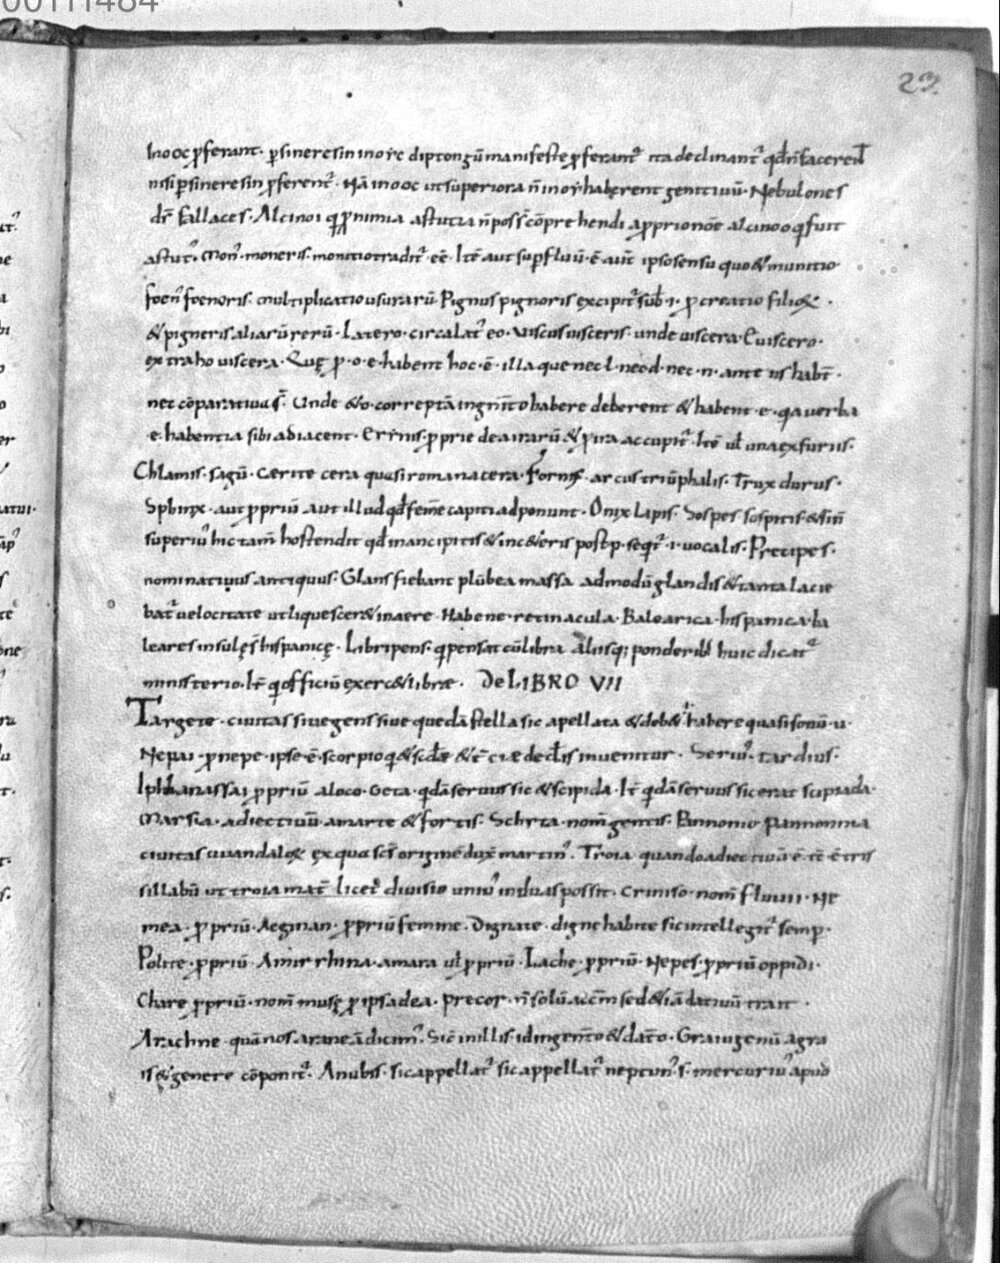 00111484
23
In oc ꝓferant. ꝑ sineresin in oẏc diptongū manifeste ꝓferant᷑ ita declinant᷑ qd̄ n̄ facerent
nisi ꝑ sineresin ꝓferent᷑. Nā in ooc ut superiora n̄ in oẏ haberent genitiuū. Nebulones
dr̄ fallaces. Alcinoi nimia astutia n̄ poss̄ cōprehendi a pprio noe alcinoo q̄ fuit
astut᷒. Mon᷑. moneris. monitio tradit᷑ eē. Itē aut supfluū. ē aut ipso sensu quo & munitio
foen᷒ foenoris. multiplicatio usurarū. Pignus pignoris excipit᷑ sub .i. ꝓ creatio filioꝝ.
& pigneris aliarū rerū. Latero. circa lat᷒ eo. Viscus uisceris. unde uiscera. Euiscero.
extraho uiscera. Quę ꝓ .o. e. habent hoc. ē. illa que nec .l. nec .d. nec .n. ante us habt̄.
nec cōparatiua s̄. Unde & o. correptā in gn̄ito habere deberent & habent .e. qa uerba
e. habentia sibi adiacent. Erinis. ꝓprie dearum & ira accipit᷑. Itē ul̄ una ex furiis.
Chlamis. sagū. Cerite cera quasi romana cera. Fornix. arcus triūphalis. Trux durus.
Sphinx. aut ꝓpriū aut illud qd̄ femē capiti adponunt. Onyx lapis. Sospes sospitis & sin̄
superiu᷒ hic tam̄ hostendit qd̄ mancipitis & inc&eris post p. seqt᷑ .i. uocalis. Precipes.
nominatiuus antiquus. Glans fiebant plūbea massa admodū glandis & tanta lacie
bat᷑ uelocitate ut liquescer& in aere. Habene. retinacula. Balearica. hispanica. ba
leares insulę s̄ hispanicę. Libripens. q̄ pensat cū libra aliisq; ponderib᷒ huic dicat᷑
ministerio. It̄ q̄ officiū exerc& librae. De LIBRO VII
Targete. ciuitas siue gens siue quedā stella sic apellata & deb& habere quasi sonū .u.
Nepai. ꝓ nepe. ipse. ē. scorpio inuenitur. Seriu᷒. tardius.
Iphianassai ꝓpriū a loco. Geta. qdā seruus sic & scipida. It̄ qdā seruus sic erat scipiada.
Marsia. adiectiuū. a marte & fortis. Schyta. nom̄ gentis. Pannonio pannonina
ciuitas uuandaloꝝ ex qua sc̄s origine dux̄ martin᷒. Troia quando adiectiuū. ē. tē. ē tris
sillabū ut troia mat̄ licet diuisio uniu᷒ in duas possit. Criniso. nom̄ fluuii. Ne
mea. ꝓpriū. Aeginan. ꝓpriū femine. Dignate. digne habite sic intellegit᷑ semp.
Polite. ꝓpriū. Amirrhina. amara ul̄ ꝓpriū. Lache. ꝓpriū. Nepes. ꝓpriū oppidi.
Chare ꝓpriū. nom̄ musę ꝓ ipsa dea. Precor. n̄ solū accm̄ sed & iā datiuū trait.
Arachne. quā nos araneā dicim᷒. Sic̄ in illis. id in gen̄to & dat̄o. Graiugenū agra
is & genere cōponit᷑. Anubis. sic appellat᷑ sic appellat᷑ neptun᷒ .s. mercuriu᷒ apud